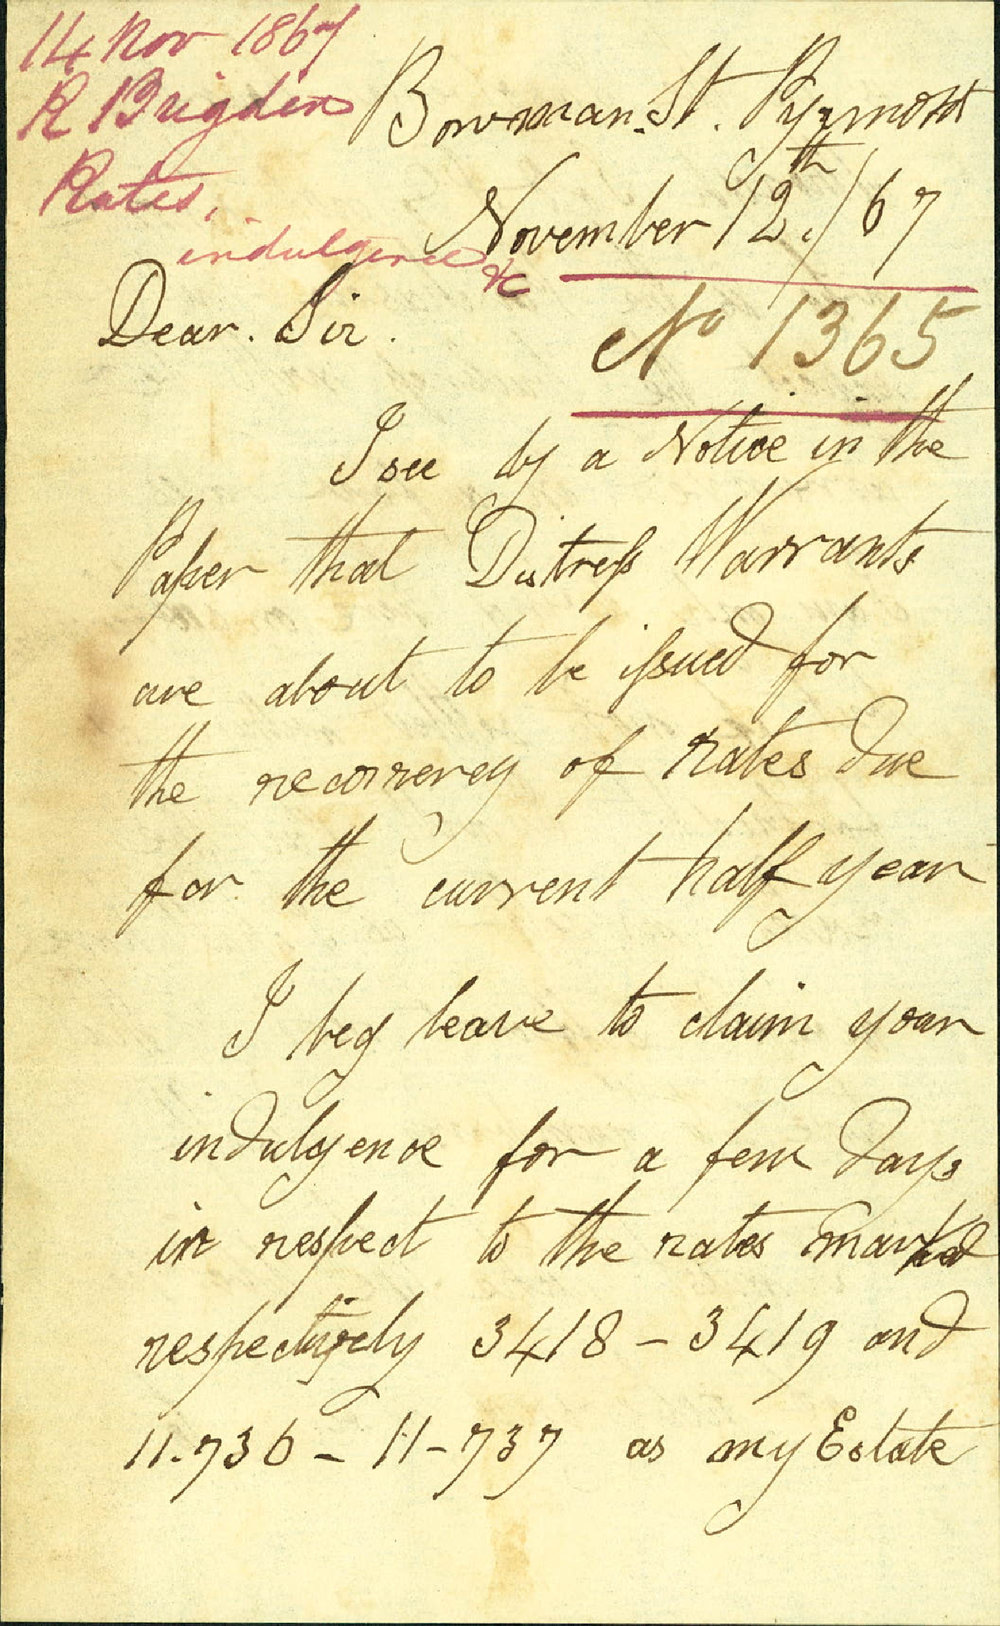 14 Nov 1867
R Brigden
Rates,
indulgence &c
Bowman. St. Pyrmont
November 12th./67
No 1365
Dear. Sir.
I see by a Notice in the
Paper that Distress Warrants
are about to be issued for
the recorrerey of rates due
for the current half year
I beg leave to claim your
indulgence for a few days
in respect to the rates marked
respectively 3418 - 3419 and
11.736 - 11-737 as my Estate